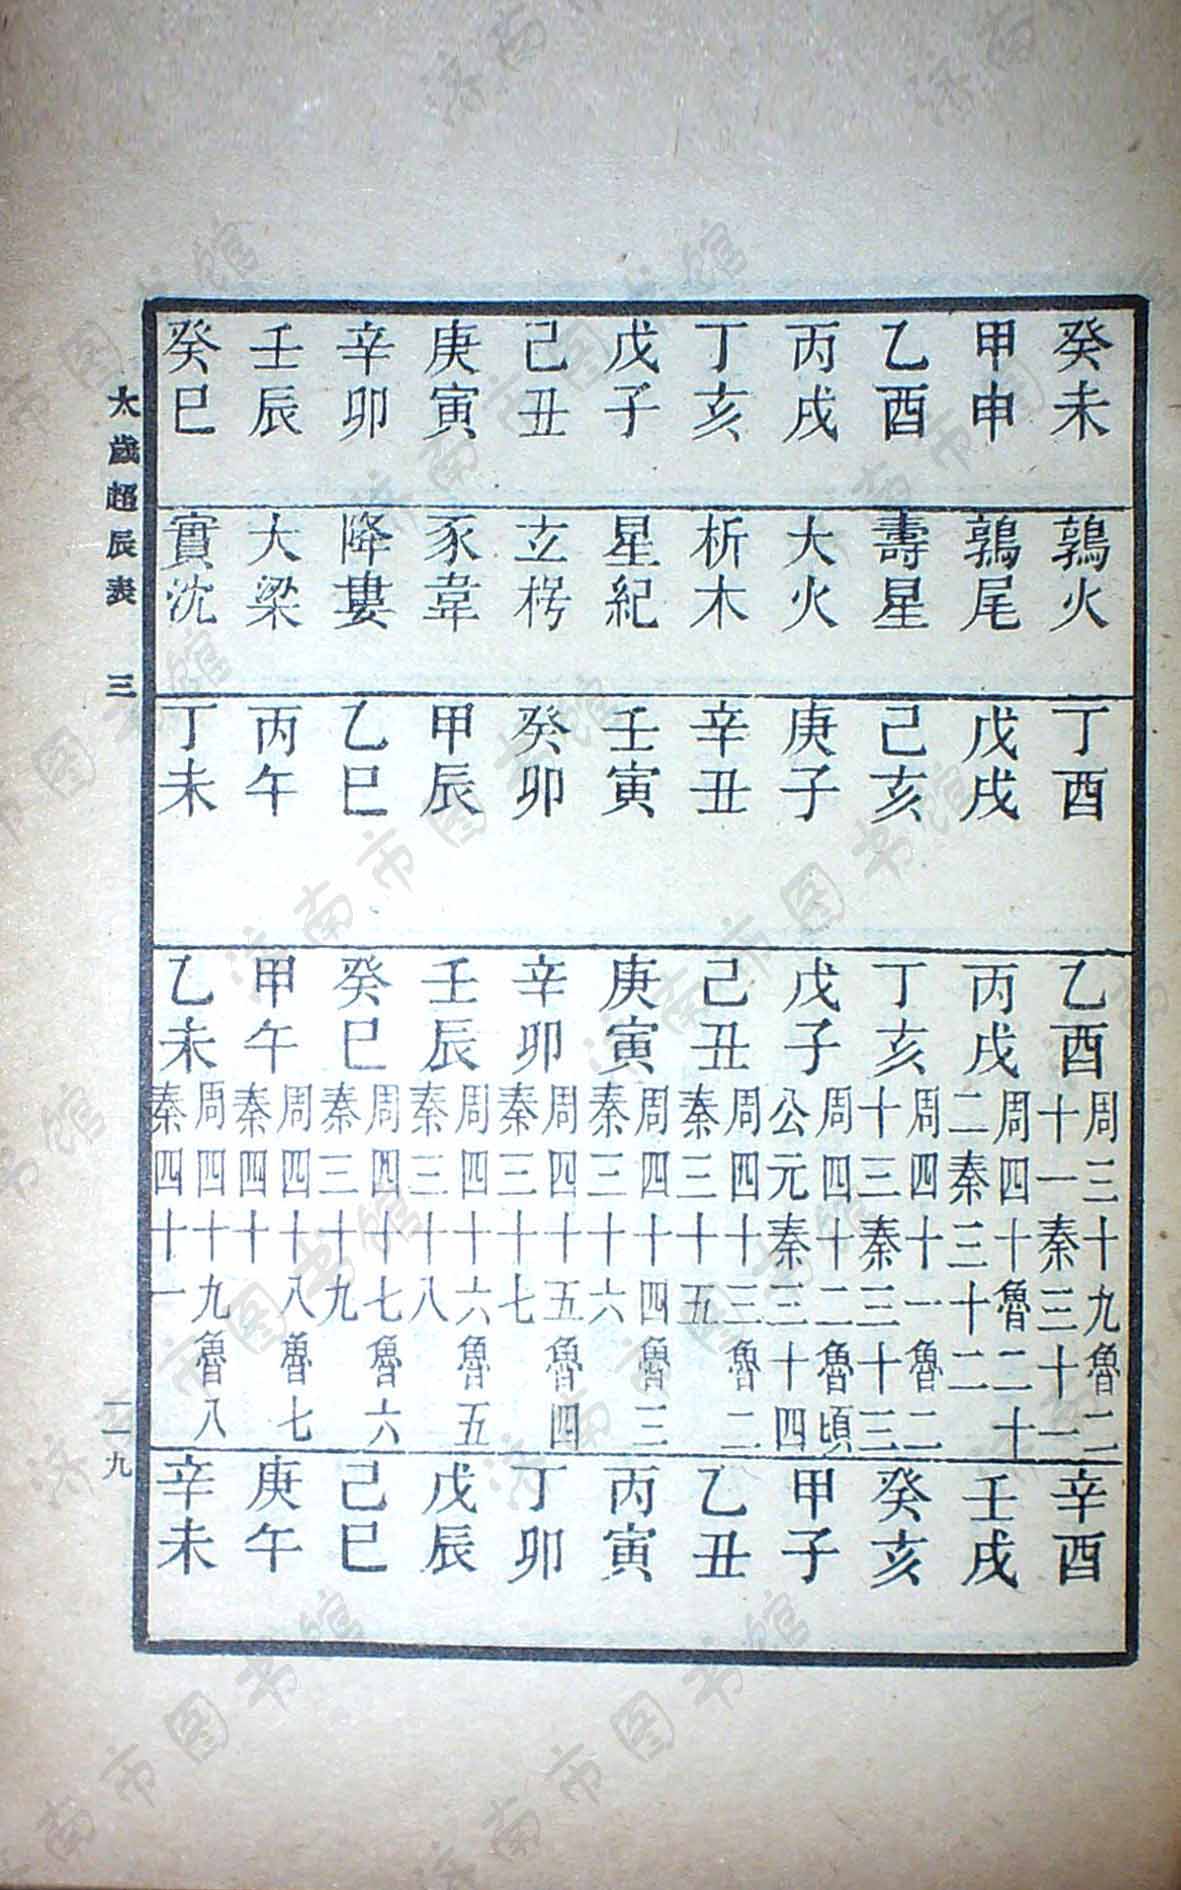 癸未 鶉火 丁酉 乙酉 周三十九魯二十一秦三十一 辛酉
甲申 鶉尾 戊戌 丙戌 周四十魯二十二秦三十二 壬戌
乙酉 壽星 己亥 丁亥 周四十一魯二十三秦三十三 癸亥
丙戌 大火 庚子 戊子 周四十二魯頃公元秦三十四 甲子
丁亥 析木 辛丑 己丑 周四十三魯二秦三十五 乙丑
戊子 星紀 壬寅 庚寅 周四十四魯三秦三十六 丙寅
己丑 玄枵 癸卯 辛卯 周四十五魯四秦三十七 丁卯
庚寅 豕韋 甲辰 壬辰 周四十六魯五秦三十八 戊辰
辛卯 降婁 乙巳 癸巳 周四十七魯六秦三十九 己巳
壬辰 大梁 丙午 甲午 周四十八魯七秦四十 庚午
癸巳 實沈 丁未 乙未 周四十九魯八秦四十一 辛未
太歲超辰表 三 一二九
济南市图书馆